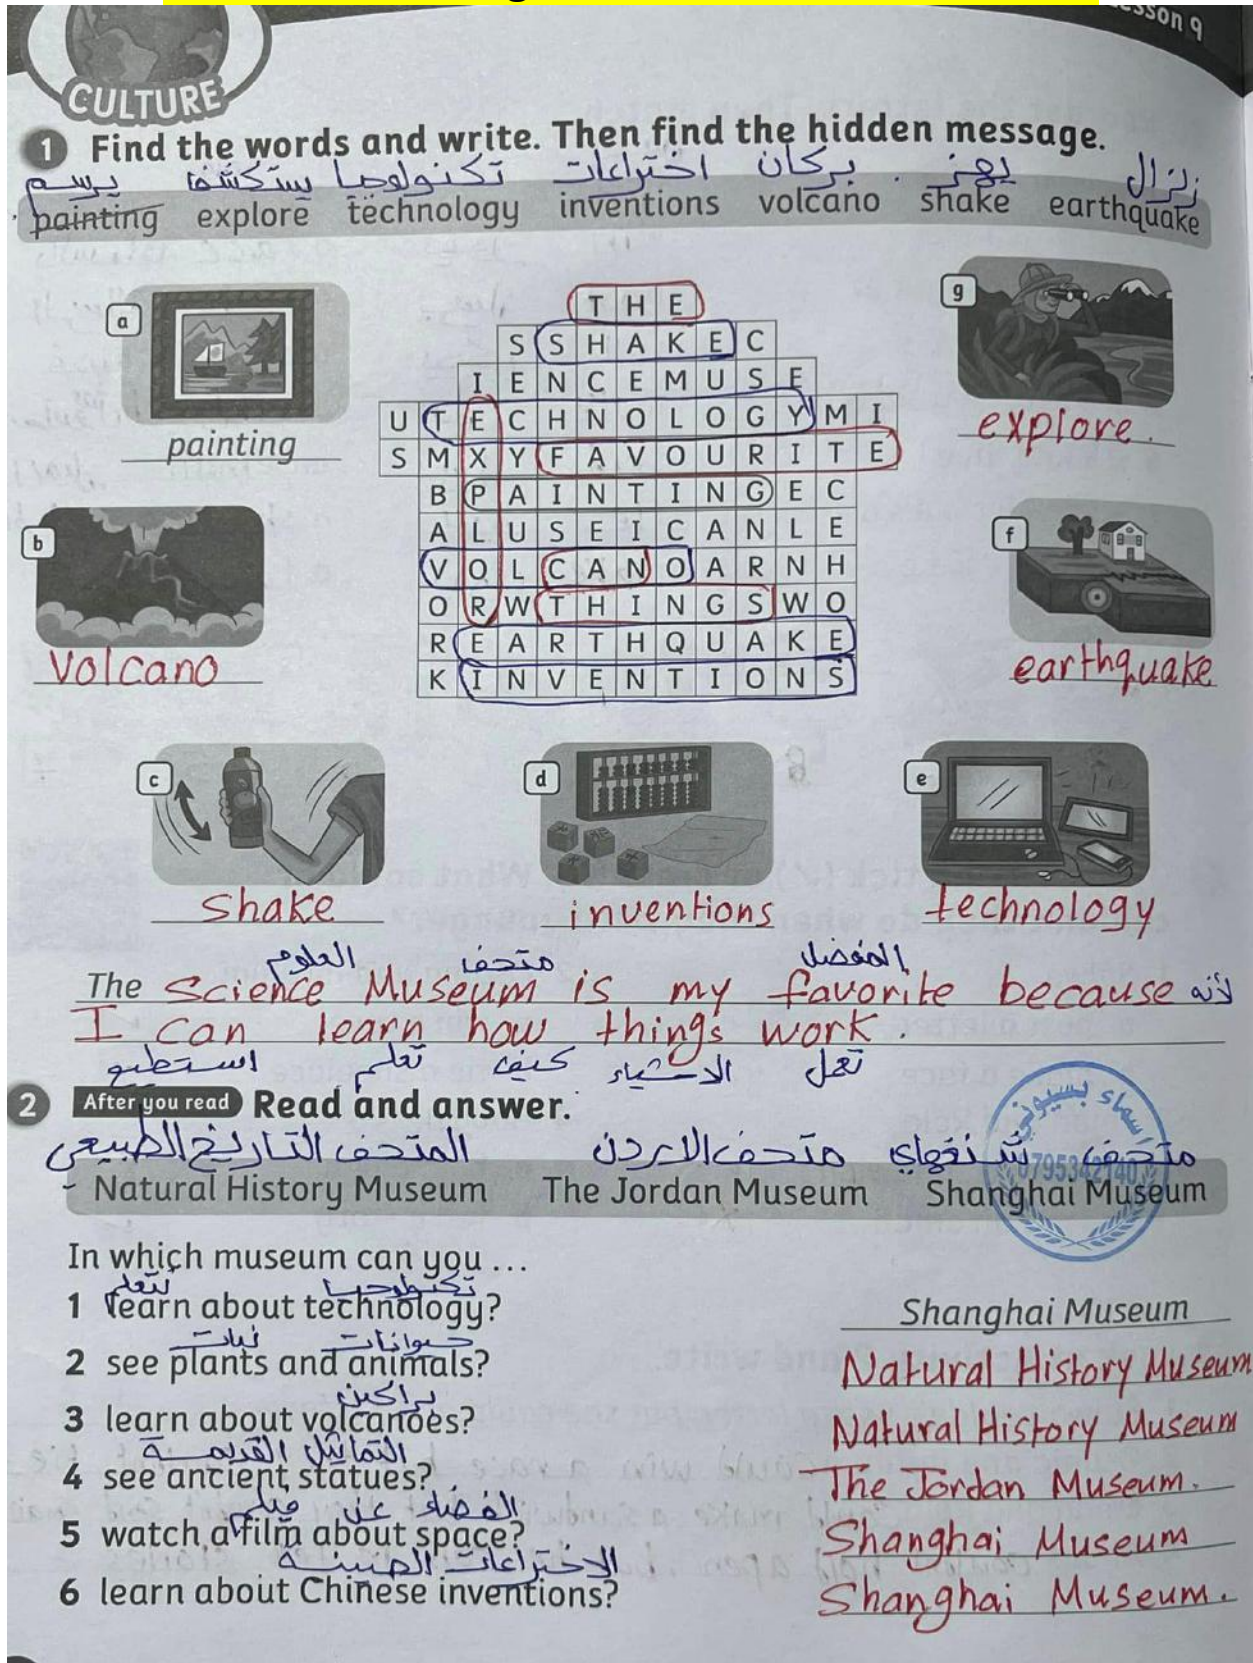 Lesson 9
CULTURE
1 Find the words and write. Then find the hidden message.
يرسم يستكشف تكنولوجيا اختراعات بركان يهز زلزال
painting explore technology inventions volcano shake earthquake
a
painting
b
volcano
T H E
S S H A K E C
I E N C E M U S E
U T E C H N O L O G Y M I
S M X Y F A V O U R I T E
B P A I N T I N G E C
A L U S E I C A N L E
V O L C A N O A R N H
O R W T H I N G S W O
R E A R T H Q U A K E
K I N V E N T I O N S
g
explore.
f
earthquake
c
shake
d
inventions
e
technology
العلوم متحف المفضل
The Science Museum is my favorite because لأنه
I can learn how things work.
استطيع تعلم كيف الاشياء تعمل
2 After you read Read and answer.
المتحف التاريخ الطبيعي متحف الاردن متحف شنغهاي
Natural History Museum The Jordan Museum Shanghai Museum
اسماء بسيوني
0795342140
In which museum can you ...
لتتعلم تكنولوجيا
1 learn about technology? Shanghai Museum
نبات حيوانات
2 see plants and animals? Natural History Museum
براكين
3 learn about volcanoes? Natural History Museum
التماثيل القديمة
4 see ancient statues? The Jordan Museum.
فيلم عن الفضاء
5 watch a film about space? Shanghai Museum
الاختراعات الصينية
6 learn about Chinese inventions? Shanghai Museum.